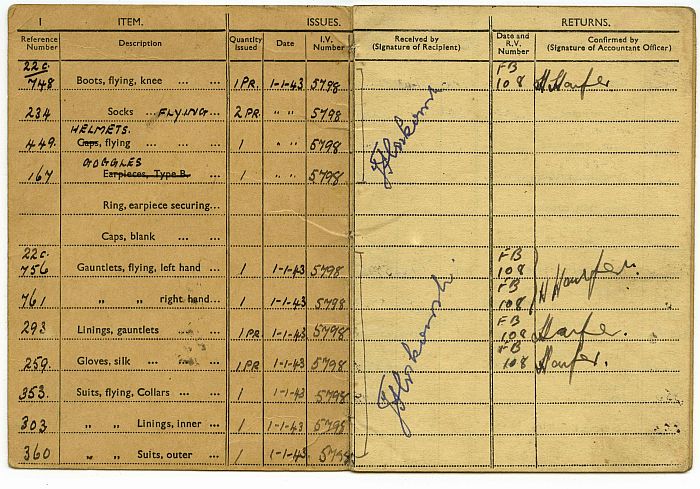 1 ITEM. ISSUES. RETURNS.
Reference Number Description Quantity Issued Date I.V. Number Received by (Signature of Recipient) Date and R.V. Number Confirmed by (Signature of Accountant Officer)
22c. FB
748 Boots, flying, knee ... ... 1 PR. 1-1-43 5798 108
234 Socks ... FLYING ... 2 PR " " 5798
HELMETS.
449. Caps, flying ... ... 1 " " 5798
GOGGLES
167 Earpieces, Type B. ... 1 " " 5798
Ring, earpiece securing...
Caps, blank ... ...
22c. FB
756 Gauntlets, flying, left hand ... 1 1-1-43 5798 108
FB
761 " " right hand... 1 1-1-43 5798 108
FB
293 Linings, gauntlets ... ... 1 PR. 1-1-43 5798 108
FB
259. Gloves, silk ... ... ... 1 PR 1-1-43 5798 108
353. Suits, flying, Collars ... ... 1 1-1-43 5798
303 " " Linings, inner ... 1 1-1-43 5798
360 " " Suits, outer ... 1 1-1-43 5798